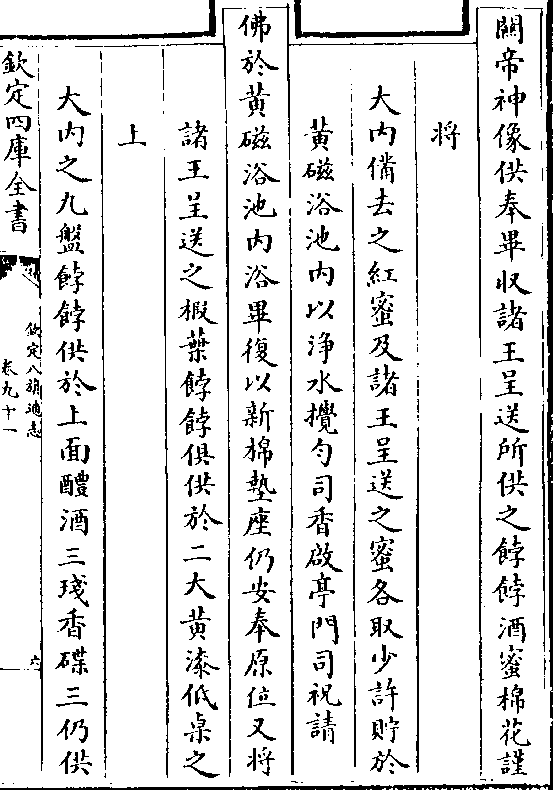 關帝神像供奉畢収諸王呈送所供之餑餑酒蜜棉花謹
將
大内偹去之紅蜜及諸王呈送之蜜各取少許貯於
黃磁浴池内以淨水攪勻司香啟亭門司祝請
佛於黃磁浴池内浴畢復以新棉墊座仍安奉原位又將
諸王呈送之椴葉餑餑俱供於二大黃漆低桌之
上
大内之九盤餑餑供於上面醴酒三琖香碟三仍供
欽定四庫全書
欽定八旗通志
卷九十一
六